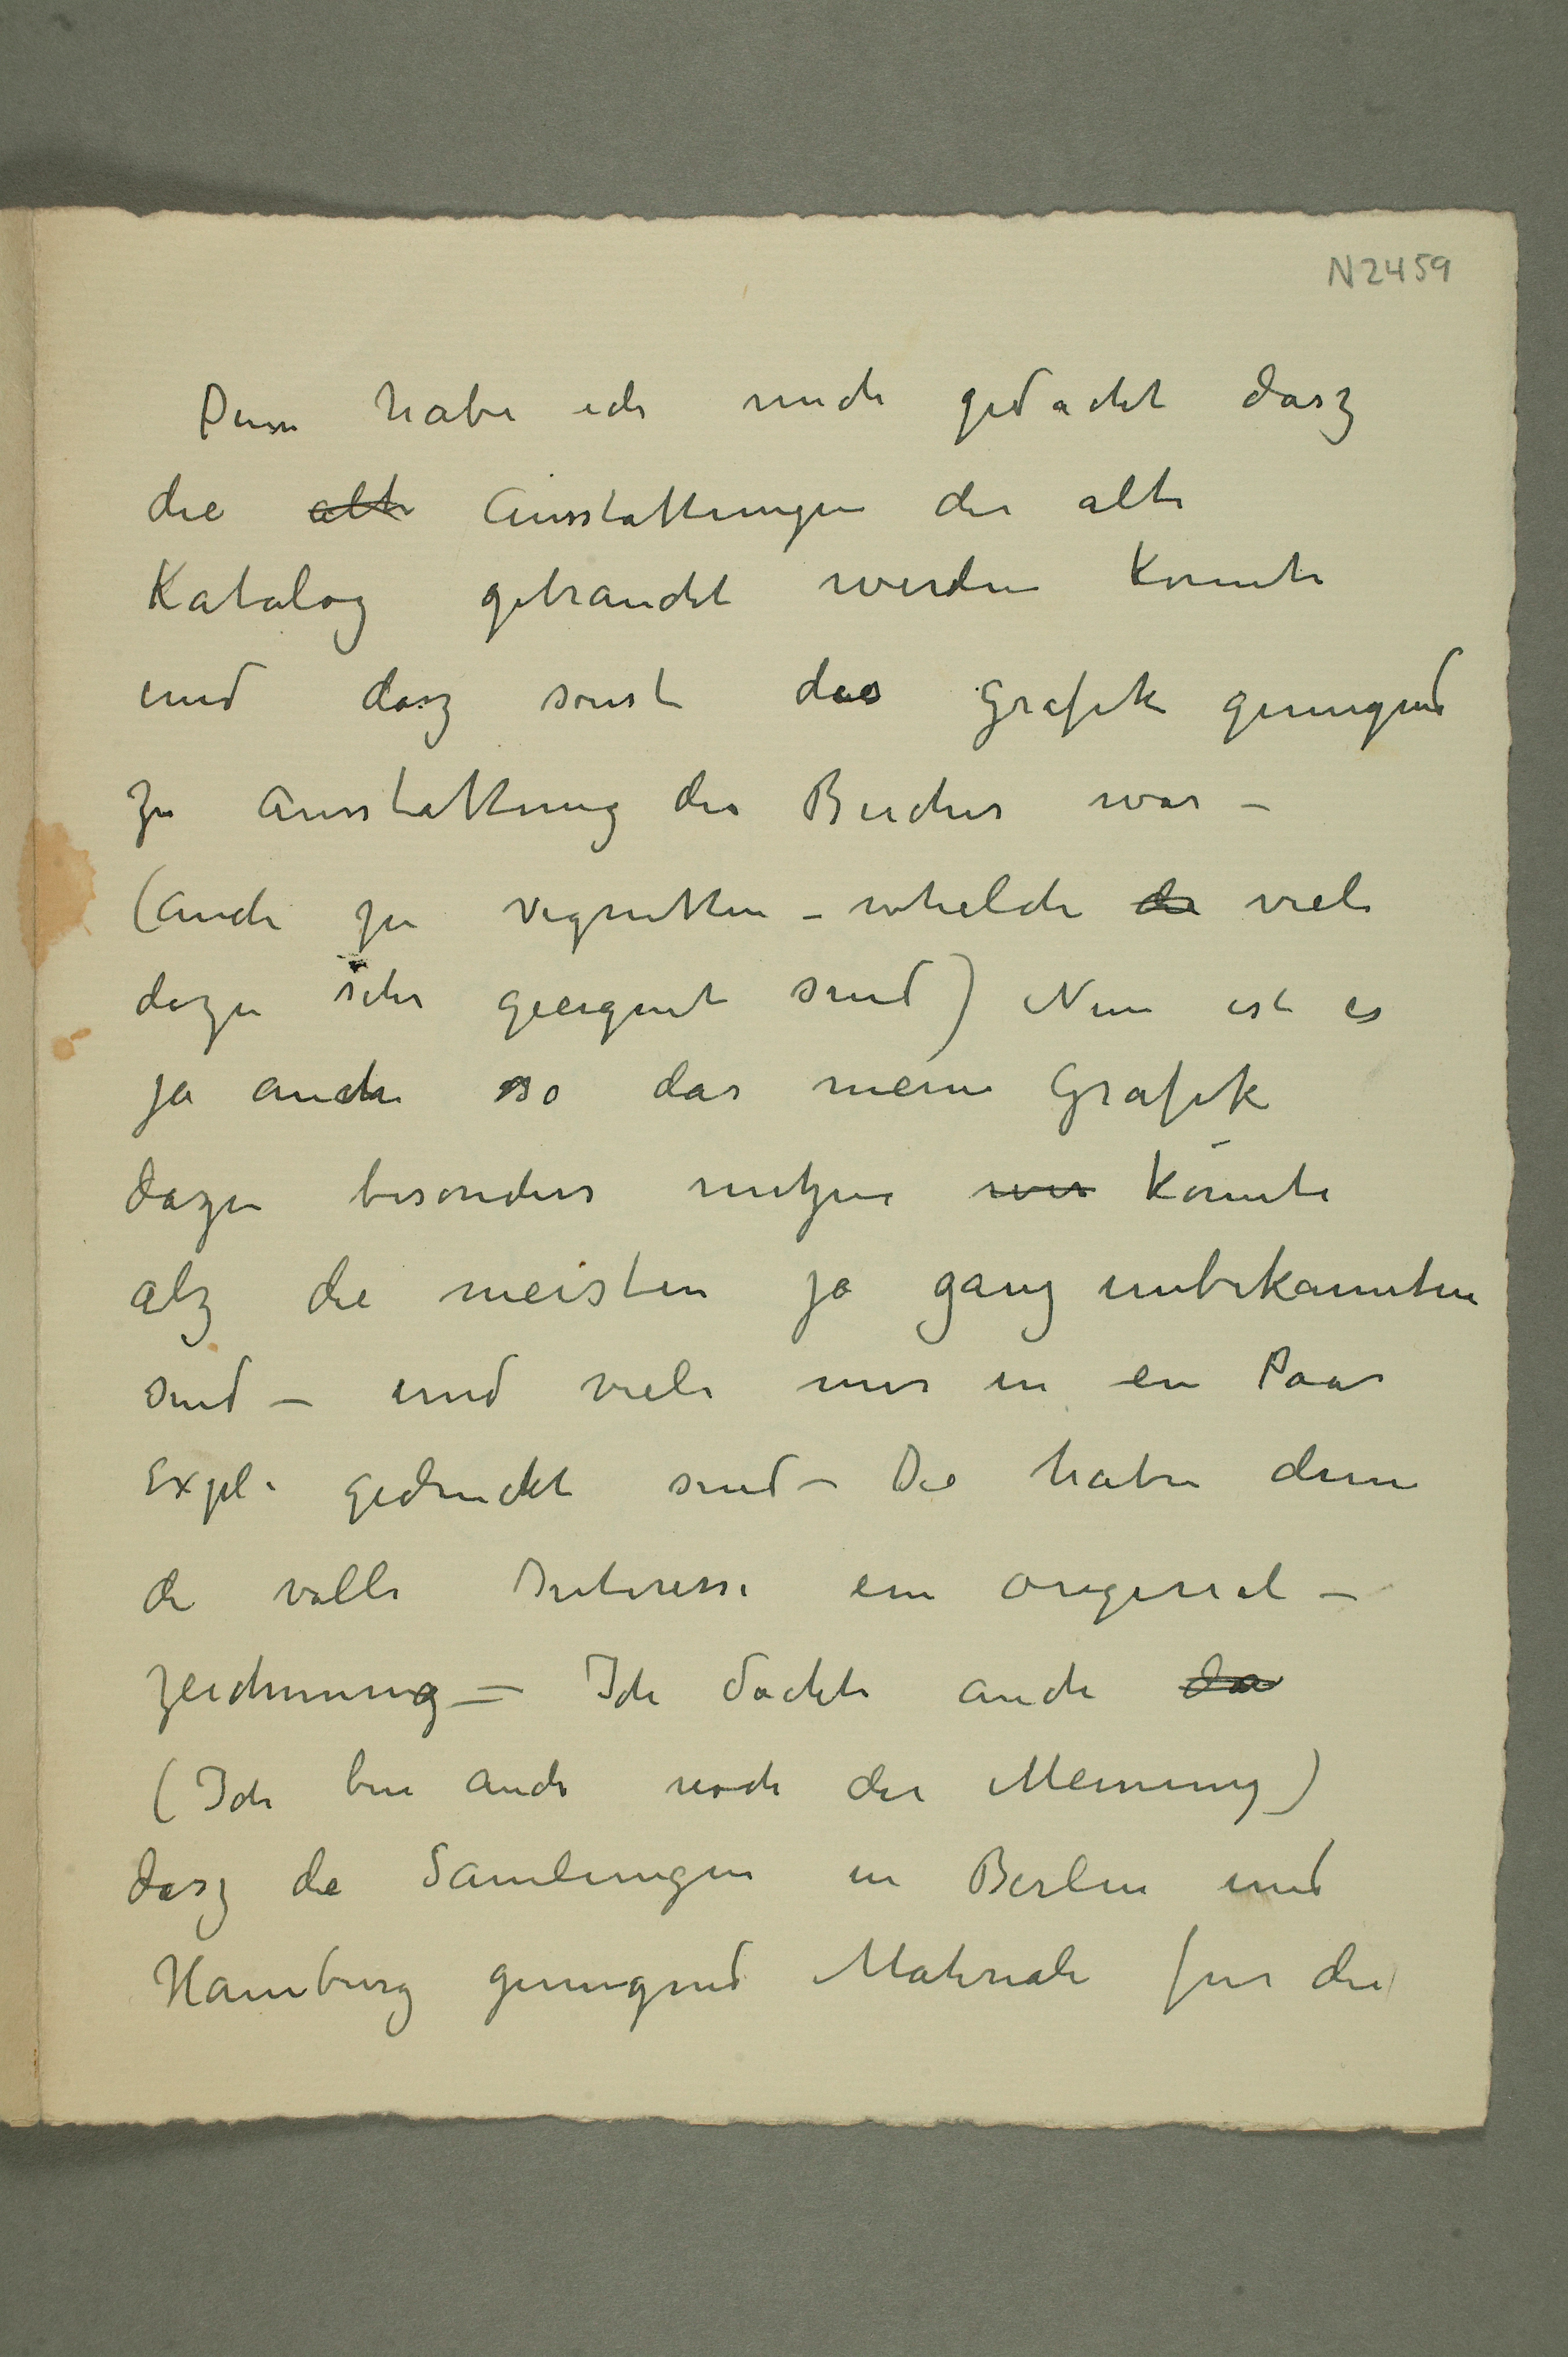 N 2459
Denn habe ich mich gedacht dasz
die alte Ausstattungen der alte
Katalog gebraucht werden konnte
und dasz sonst das Grafik genugend
zu Ausstattung der Bucher war –
(auch zu Vignetten – whelche die viele
dazu sehr geeignet sind) Nun ist es
ja auch so das meine Grafik
dazu besonders nutzen wer konnte
alz die meisten ja ganz unbekannten
sind – und viele nur in ein Paar
Expl. gedruckt sind – Die haben denn
de volle Interesse ein original –
zeichnung – Ich dachte auch da
(Ich bin auch noch der Meinung)
dasz die Samlungen in Berlin und
Hamburg genugend Materiale fur die